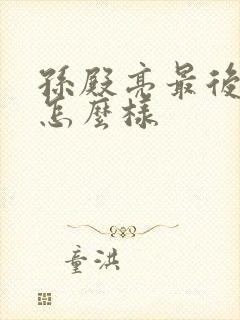 孫殿亮最後
怎麼樣
童洪